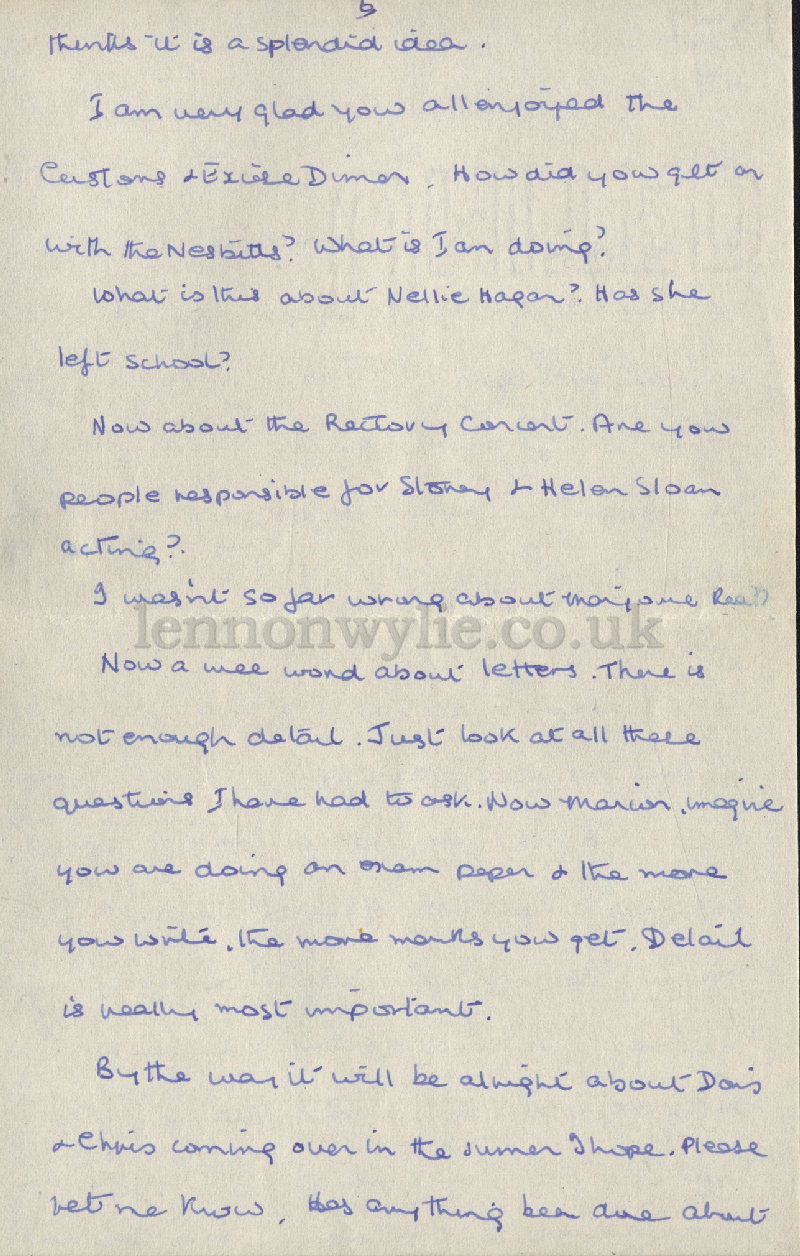 5
thinks it is a splendid idea.
I am very glad you all enjoyed the
Customs & Excise Dinner. How did you get on
with the Nesbitts? What is Ian doing?
What is this about Nellie Hagan? Has she
left school?
Now about the Rectory Concert. Are you
people responsible for Stoney & Helen Sloan
acting?
I wasn't so far wrong about Marjorie
lennonwylie.co.uk
Now a wee word about letters. There is
not enough detail. Just look at all these
questions I have had to ask. Now Marion, imagine
you are doing an exam paper & the more
you write, the more marks you get. Detail
is really most important.
By the way it will be alright about Doris
& Chris coming over in the summer I hope. Please
let me know. Has anything been done about